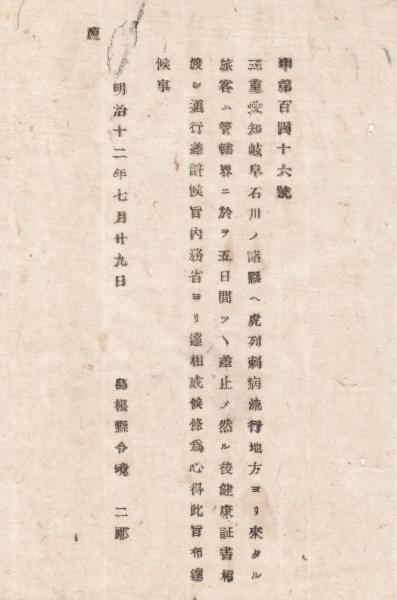 甲第百四十六號
三重愛知岐阜石川ノ諸縣ヘ虎列剌病流行地方ヨリ來タル
旅客ハ管轄界ニ於テ五日間ツヽ差止メ然ル後健康証書相
渡シ通行差許候旨内務省ヨリ達相成候條爲心得此旨布達
候事
明治十二年七月廿九日
島根縣令境二郎